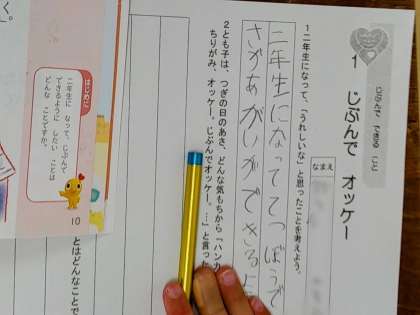 じぶんで できる こと
1 じぶんで オッケー
なまえ
1 二年生になって、「うれしいな」と思ったことを考えよう。
二年生になっててつぼうで
さかあがいがができる
2 とも子は、つぎの日のあさ、どんな気もちから「ハンカ
ちりがみ、オッケー。じぶんでオッケー。…」と言った
とはどんなことで
はじめに
二年生に なって、じぶんで
できるように したい ことは
どんな ことですか。
10
く。